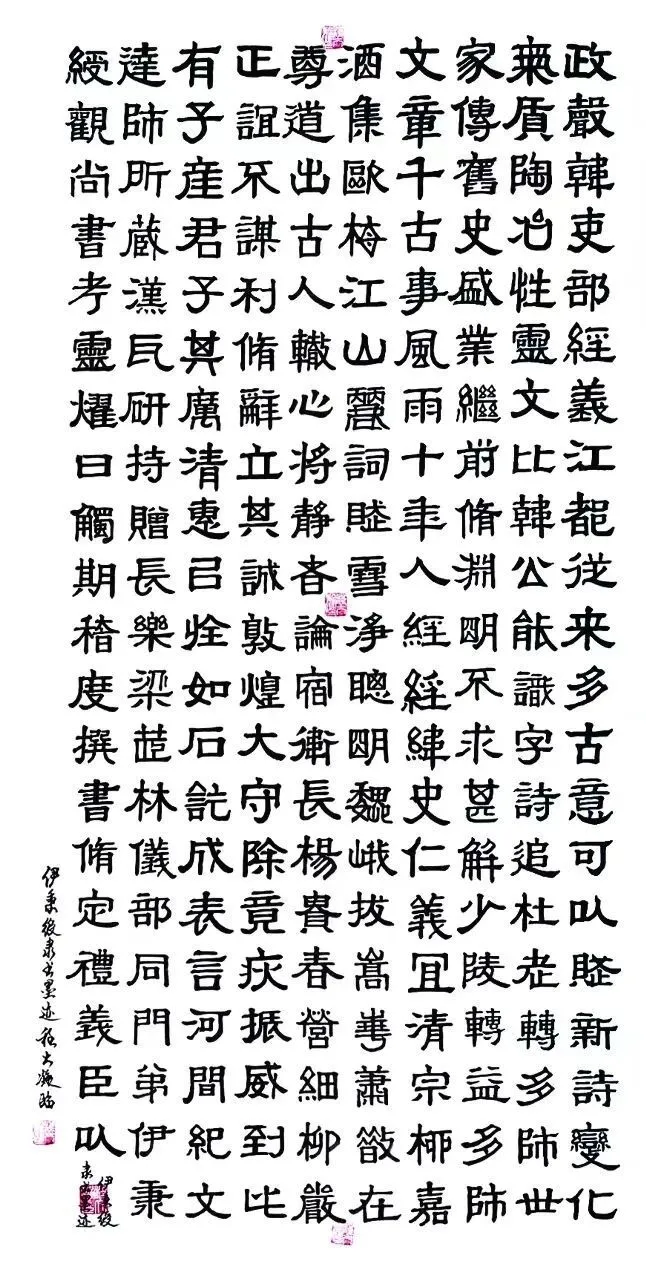 政聲韓吏部經義江都從来多古意可㠯賦新詩變化
無質陶冶性靈文比韓公能識字詩追杜老轉多師世
家傳舊史盛業繼前脩淵明不求甚解少陵轉益多師
文章千古事風雨十年人經經緯史仁義冝清宗栁嘉
酒集歐梅江山麗詞賦雪淨聰明魏峨拔嵩華蕭散在
尊道出古人轍心將靜者論宿衛長楊賁春營細柳嚴
正誼不謀利脩辭立其誠敦煌大守除竟疢振威到此
有子産君子其廣清惠㠯恮如石託成表言河間紀文
達師所藏漢瓦研持贈長樂梁芷林儀部同門弟伊秉
綬觀尚書考靈燿曰觸期稽度撰書脩定禮義臣㠯
伊秉綬隶书墨迹
伊秉綬隶书墨迹 大凝临